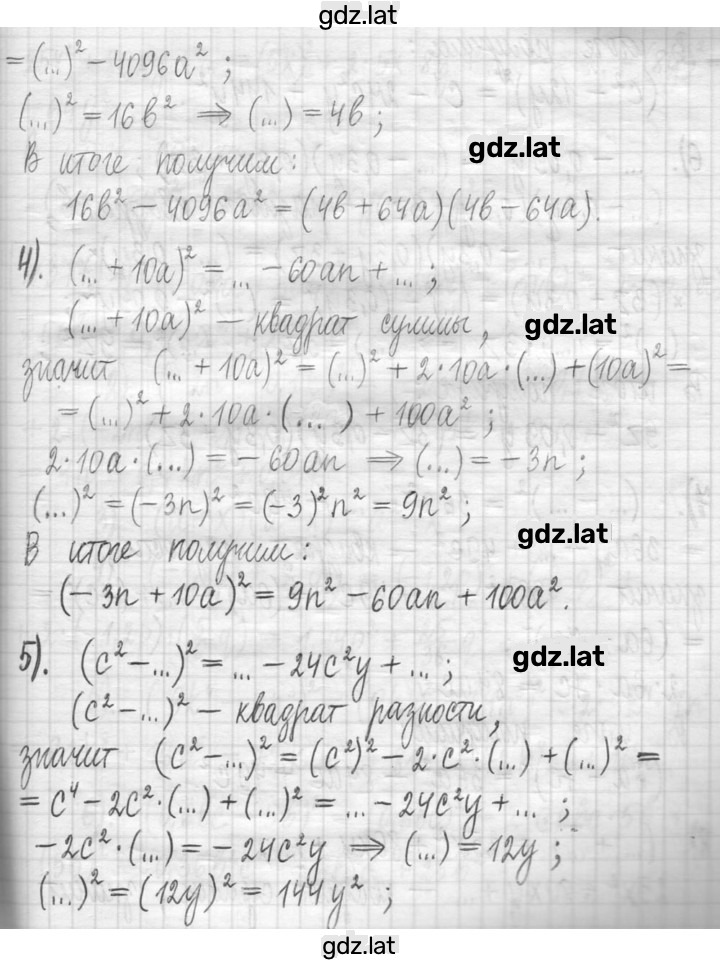 gdz.lat
= (...)² – 4096a² ;
(...)² = 16b² ⇒ (...) = 4b ;
В итоге получим: gdz.lat
16b² – 4096a² = (4b + 64a)(4b – 64a).
4). (... + 10a)² = ... – 60an + ... ;
(... + 10a)² – квадрат суммы, gdz.lat
значит (... + 10a)² = (...)² + 2·10a·(...) + (10a)² =
= (...)² + 2·10a·(...) + 100a² ;
2·10a·(...) = – 60an ⇒ (...) = – 3n ;
(...)² = (–3n)² = (–3)²n² = 9n² ;
gdz.lat
В итоге получим:
(– 3n + 10a)² = 9n² – 60an + 100a².
5). (c² – ...)² = ... – 24c²y + ... ; gdz.lat
(c² – ...)² – квадрат разности,
значит (c² – ...)² = (c²)² – 2·c²·(...) + (...)² =
= c⁴ – 2c²·(...) + (...)² = ... – 24c²y + ... ;
– 2c²·(...) = – 24c²y ⇒ (...) = 12y ;
(...)² = (12y)² = 144y² ;
gdz.lat